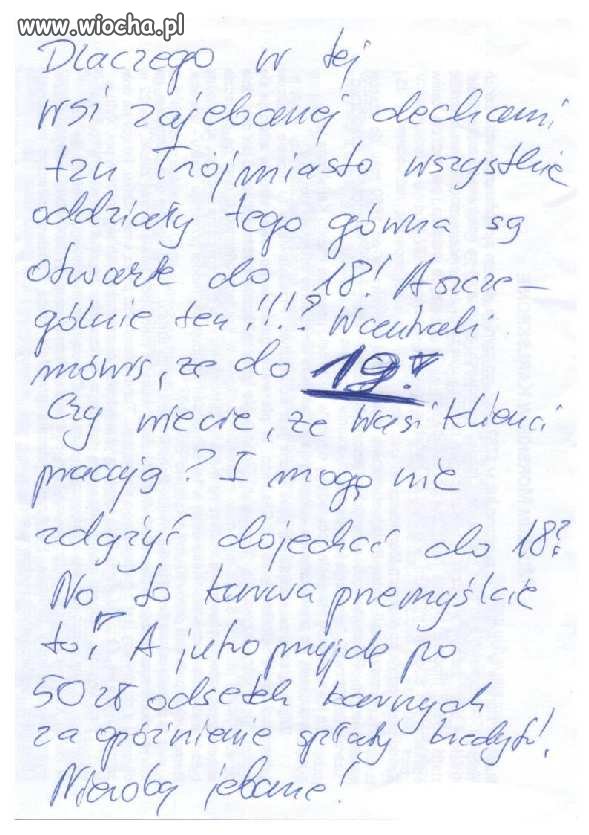 www.wiocha.pl
Dlaczego w tej
wsi zajebanej dechami
tzn Trójmiasto wszystkie
oddziały tego gówna są
otwarte do 18! A szcze-
gólnie ten!!!? W centrali
mówią, że do 19!
Czy wiecie, że wasi klienci
pracują? I mogą nie
zdążyć dojechać do 18?
No to kurwa przemyślcie
to! A jutro przyjdę po
50 zł odsetek karnych
za opóźnienie spłaty kredytu!
Nieroby jebane!